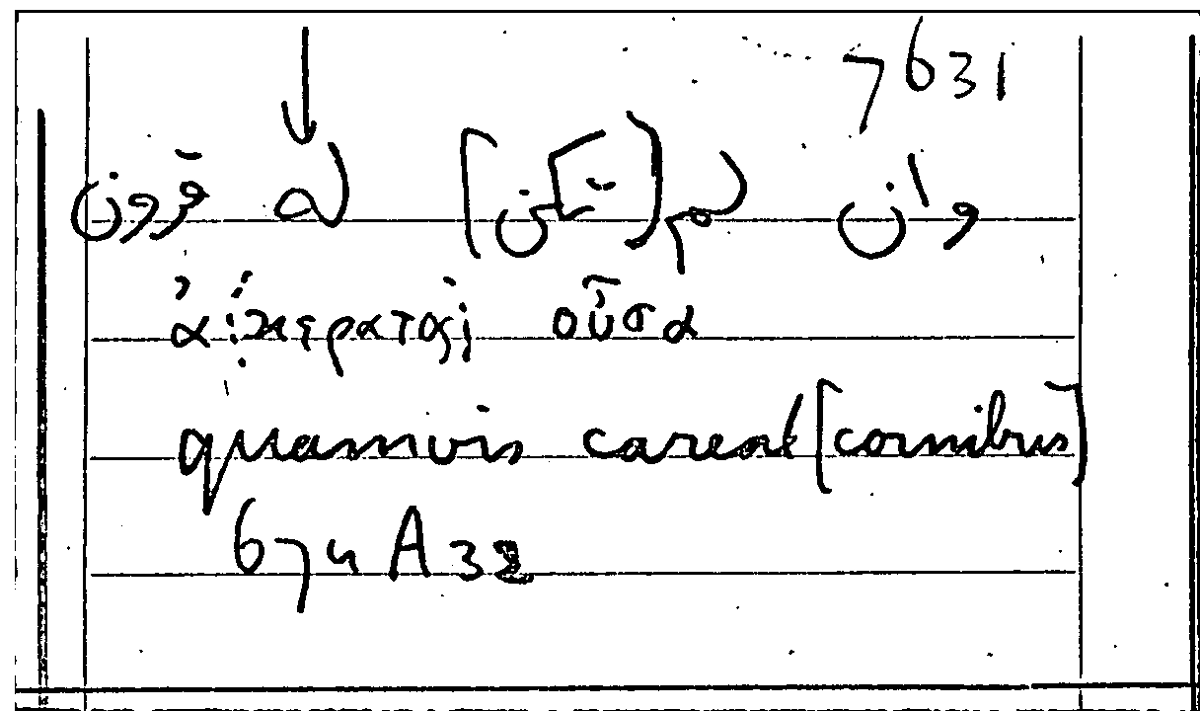 7631
وان لم [تكن] له قرون
ἀκεραται οὖσα
quamvis careat [cornibus]
674 A 32